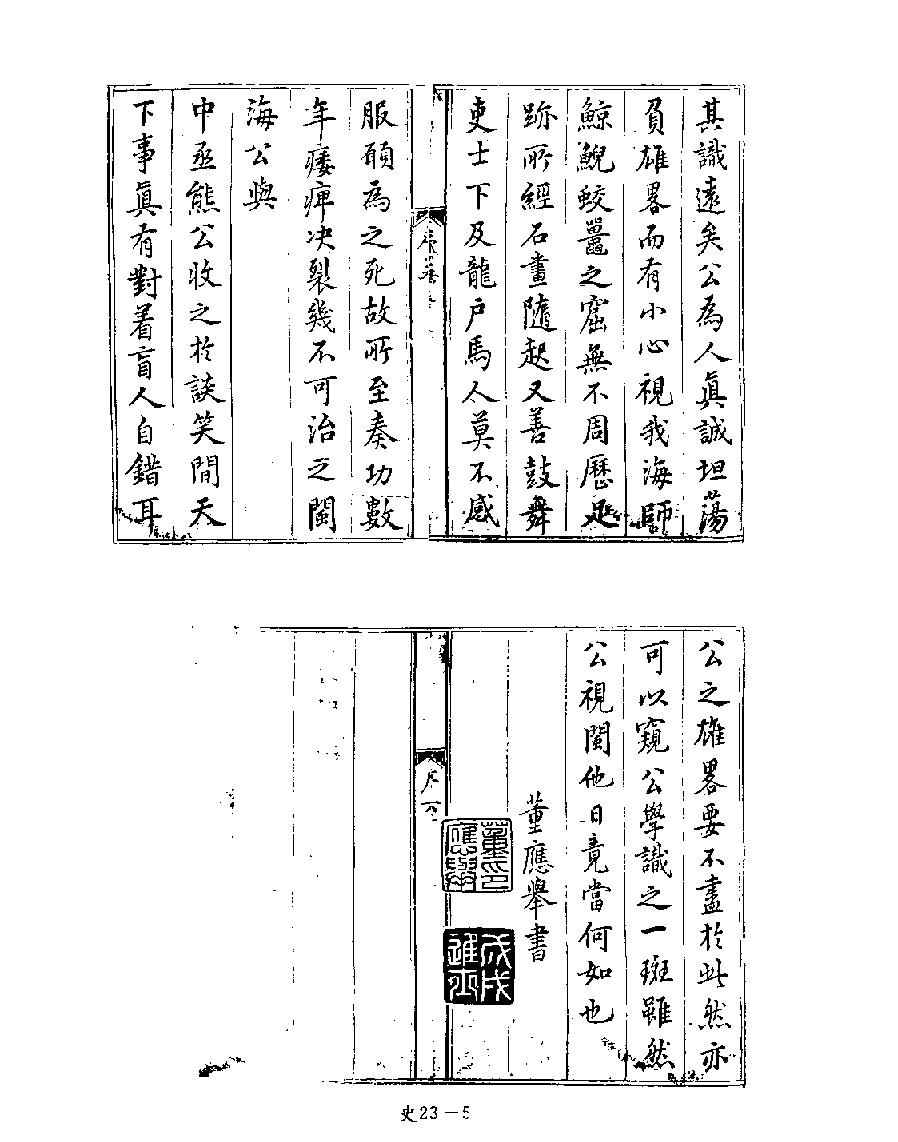 其識遠矣公為人眞誠坦蕩
負雄畧而有小心視我海師
鯨鯢鮫鼍之窟無不周歷足
跡所經石畫隨起又善鼓舞
吏士下及龍户馬人莫不感
服願為之死故所至奏功數
年痿痺决裂幾不可治之閩
海公與
中丞熊公收之於談笑間天
下事眞有對着盲人自錯耳
公之雄畧要不盡於此然亦
可以窺公學識之一斑雖然
公視閩他日竟當何如也
董應舉書
董印應舉
戊戌進士
史23－5